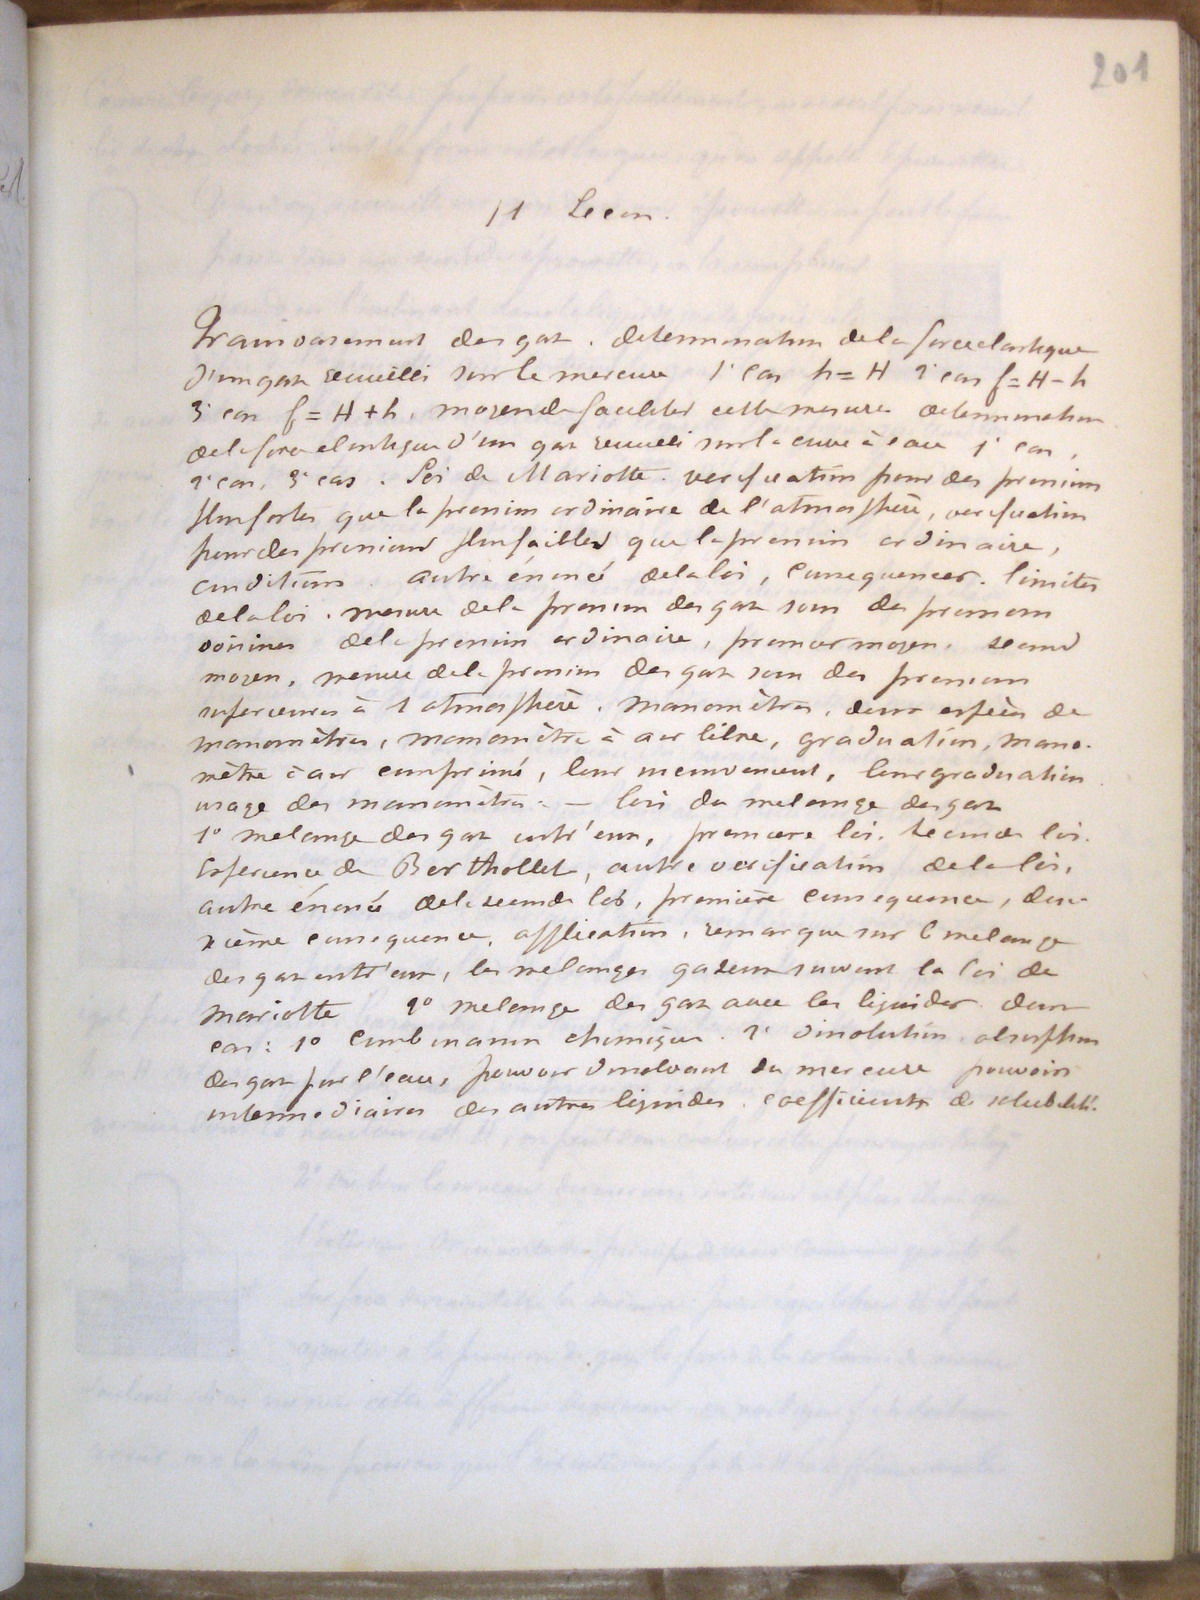 201
11 Leçon.
Transvasement des gaz. determination de la force elastique
d'un gaz recueilli sur le mercure 1° cas h = H 2° cas f = H - h
3° cas f = H + h. moyen de faciliter cette mesure determination
de la force elastique d'un gaz recueilli sur la cuve à eau 1° cas,
2° cas, 3° cas. Loi de Mariotte. verification pour des pressions
plus fortes que la pression ordinaire de l'atmosphère, verification
pour des pressions plus faibles que la pression ordinaire,
conditions. autre énoncé de la loi, consequences. limites
de la loi. mesure de la pression des gaz sous des pressions
voisines de la pression ordinaire, premier moyen, second
moyen, mesure de la pression des gaz sous des pressions
superieures à 1 atmosphère. Manomètres. deux espèces de
manomètres, manomètre à air libre, graduation, mano-
mètre à air comprimé, leur mouvement, leur graduation
usage des manomètres. — lois du melange des gaz
1° melange des gaz entr'eux, premiere loi. seconde loi.
Experience de Berthollet, autre verification de la loi,
autre énoncé de la seconde loi, première consequence, deu-
xième consequence, application, remarque sur le melange
des gaz entr'eux, les melanges gazeux suivent la loi de
Mariotte 2° melange des gaz avec les liquides deux
cas : 1° Combinaison chimique. 2° dissolution. absorption
des gaz par l'eau, pouvoir dissolvant du mercure pouvoirs
intermediaires des autres liquides. coefficients de solubilité.